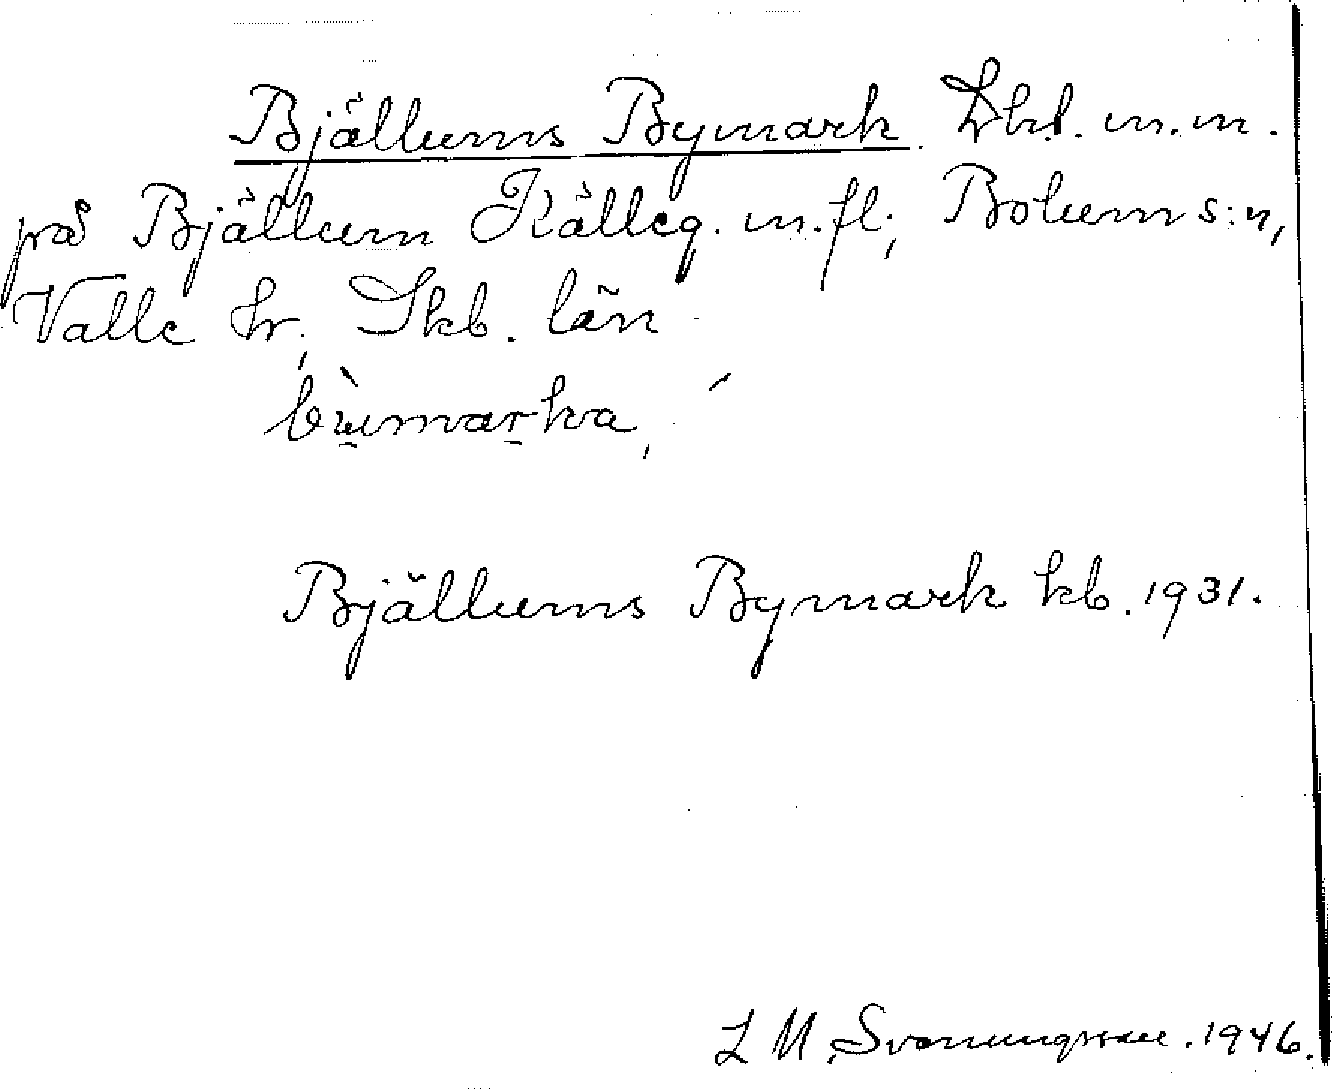 Bjällums Bymark. Lht. m.m.
på Bjällum Källeg. m.fl., Bolum s:n,
Valle hr, Skb. län
bùmarka,
Bjällums Bymark kb. 1931.
L M Svanungsson. 1946.